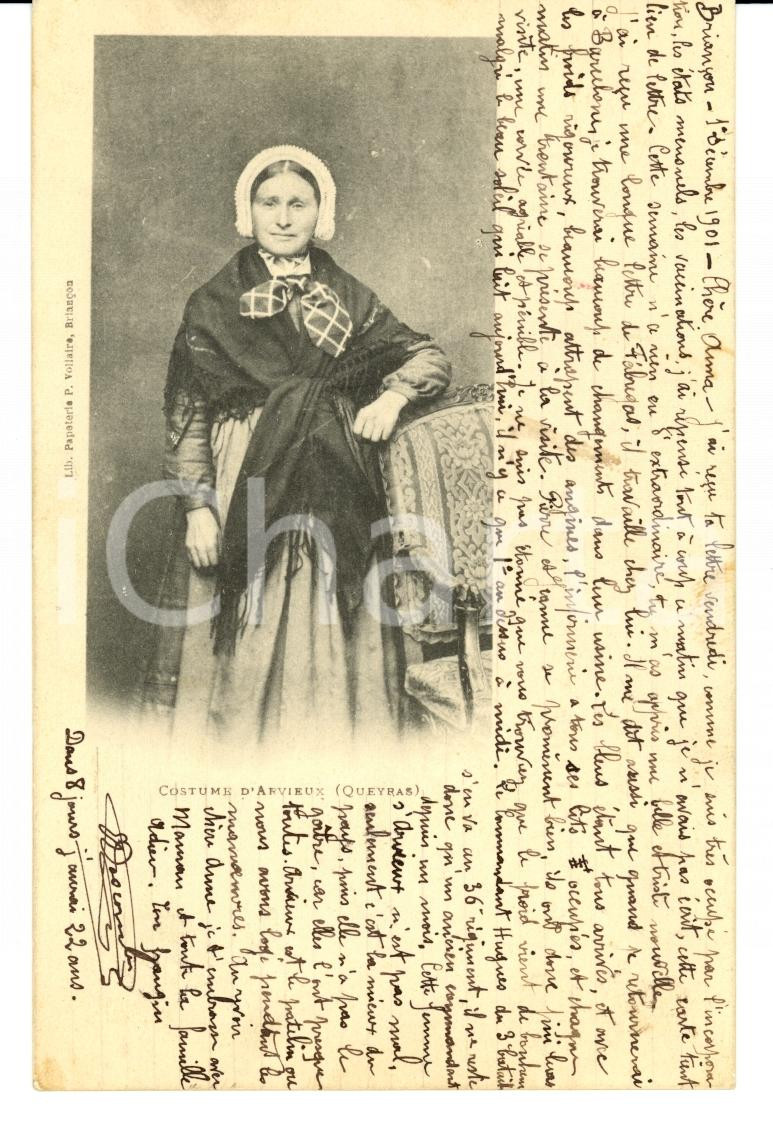 Briançon - 1er décembre 1901 - Chère Anna - j'ai reçu ta lettre vendredi, comme je suis très occupé par l'incorpora-
tion, les états mensuels, les vaccinations, j'ai repensé tout à coup ce matin que je n'avais pas écrit, cette carte tient
lieu de lettre. Cette semaine n'a rien eu d'extraordinaire, tu m'as appris une belle et triste nouvelle.
j'ai reçu une longue lettre de Fabregas, il travaille chez lui. Il me dit aussi que quand je retournerai
à Barcelone, je trouverai beaucoup de changements dans leur usine. Les bleus étant tous arrivés, et avec
les froids rigoureux, beaucoup attrapent des angines, l'infirmerie a tous ses lits occupés, et chaque
matin une trentaine se présente à la visite. Pierre et Jeanne se promènent bien, ils ont donc fini leurs
visite, une corvée agréable et pénible. Je ne suis pas étonné que vous trouviez que le froid vient de
malgré le beau soleil qui luit aujourd'hui, il n'y a que 1° au dessus à midi. Le Commandant Hugues du 3e bataill
s'en va au 36e régiment, il ne reste
donc qu'un ancien commandant
depuis un mois. Cette femme
d'Arvieux n'est pas mal,
seulement c'est la mieux du
pays, puis elle n'a pas le
goître, car elles l'ont presque
toutes. Arvieux est le patelin où
nous avons logé pendant les
manœuvres. Au revoir
chère Anna je t'embrasse avec
Maman et toute la famille
Adieu. Ton frangin
Dans 8 jours j'aurai 22 ans.
COSTUME D'ARVIEUX (QUEYRAS)
Lib. Papeterie P. Vollaire, Briançon
iChar